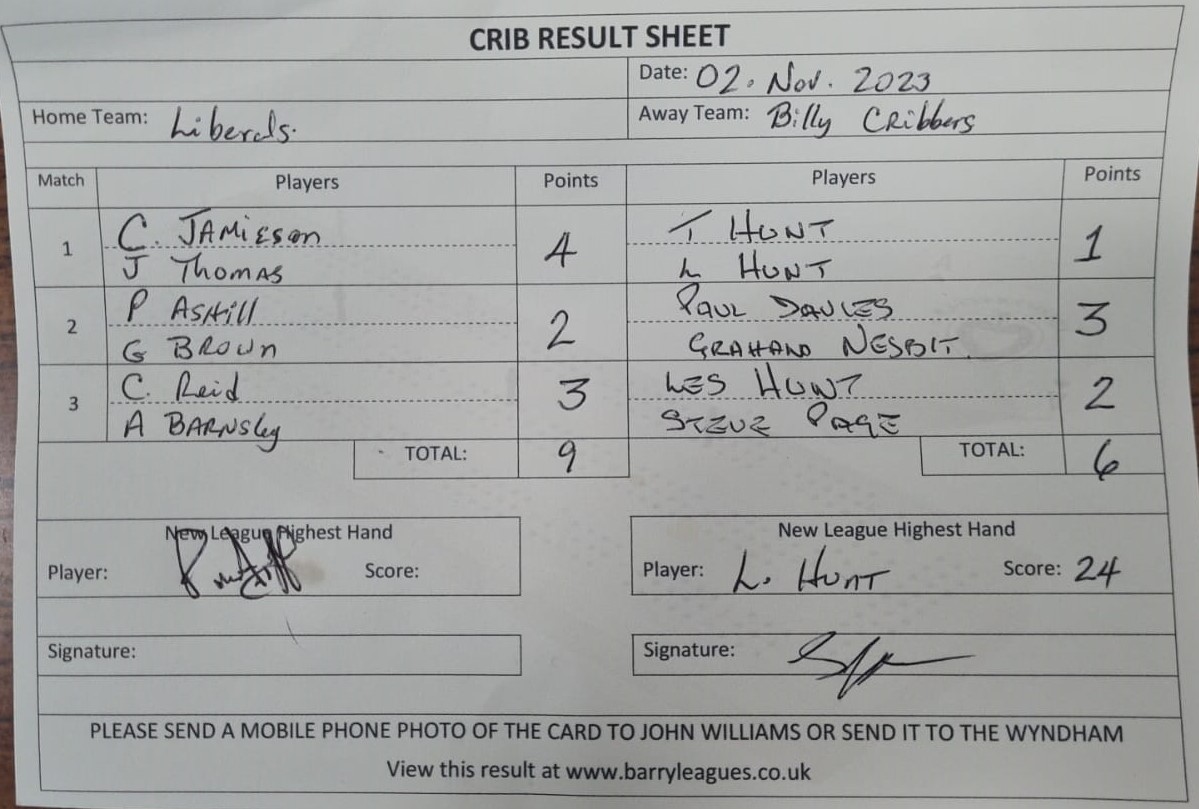 CRIB RESULT SHEET
Date: 02. Nov. 2023
Home Team: Liberals.
Away Team: Billy Cribbers
Match Players Points Players Points
1 C. JAMIESON 4 T HUNT 1
J THOMAS L HUNT
2 P ASHill 2 PAUL DAVIES 3
G BROWN GRAHAM NESBIT.
3 C. Reid 3 LES HUNT 2
A BARNSley STEVE PAGE
TOTAL: 9 TOTAL: 6
New League Highest Hand New League Highest Hand
Player: Score: Player: L. HUNT Score: 24
Signature: Signature:
PLEASE SEND A MOBILE PHONE PHOTO OF THE CARD TO JOHN WILLIAMS OR SEND IT TO THE WYNDHAM
View this result at www.barryleagues.co.uk